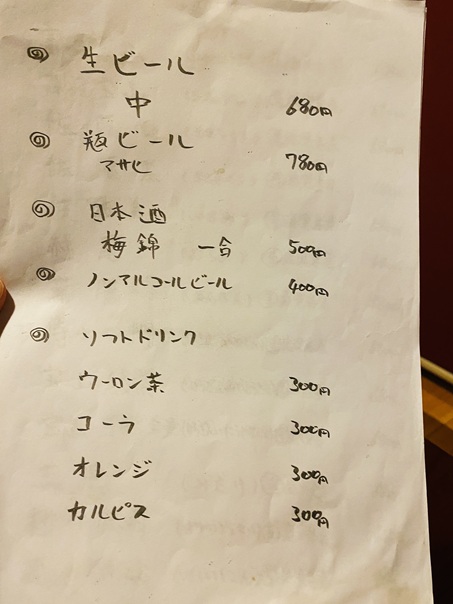 生ビール
中 680円
瓶ビール 780円
日本酒
梅錦 一合 500円
ノンアルコールビール 400円
ソフトドリンク
ウーロン茶 300円
コーラ 300円
オレンジ 300円
カルピス 300円